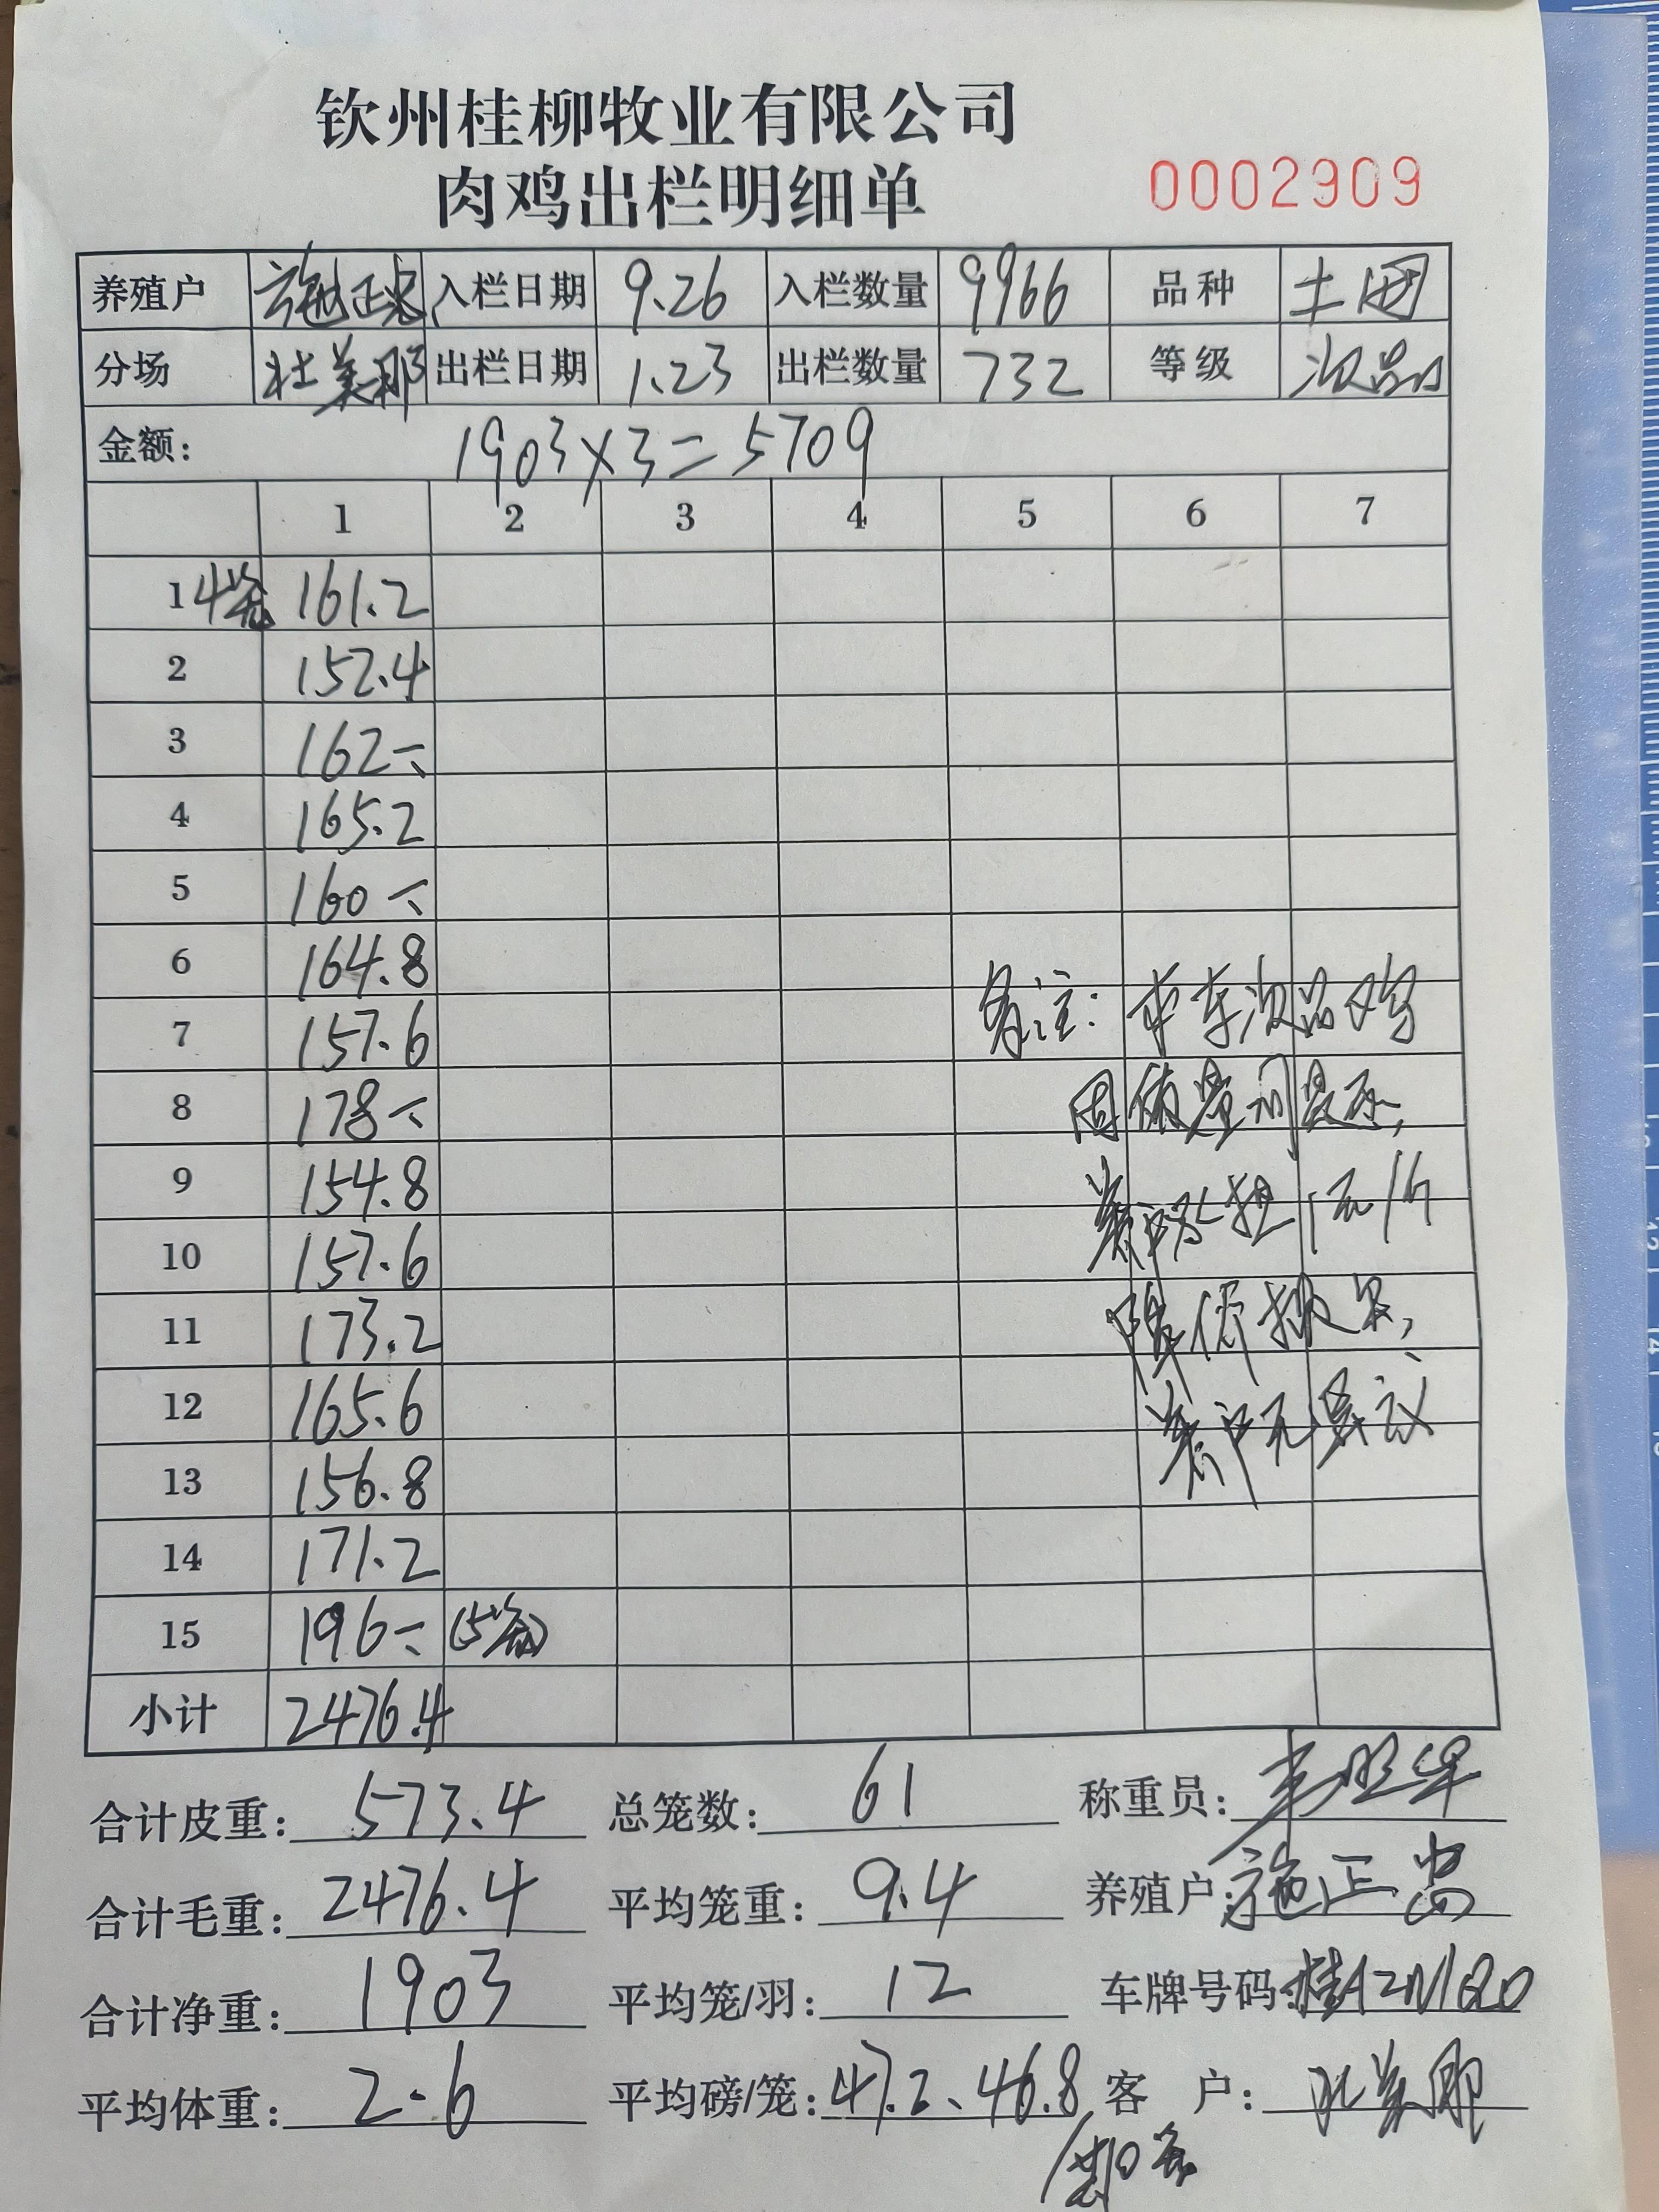 钦州桂柳牧业有限公司
肉鸡出栏明细单 0002909
养殖户 施正忠 入栏日期 9.26 入栏数量 9966 品种 土
分场 杜美那 出栏日期 1.23 出栏数量 732 等级 次品
金额: 1903×3=5709
1 2 3 4 5 6 7
1 4笼 161.2
2 152.4
3 162-、
4 165.2
5 160-、
6 164.8
7 157.6
备注: 本车次品鸡
8 178-、
因质量问题
9 154.8
养户 1元/斤
10 157.6
11 173.2
降价
12 165.6
养户无异议
13 156.8
14 171.2
15 196-、 (5笼)
小计 2476.4
合计皮重: 573.4 总笼数: 61 称重员:
合计毛重: 2476.4 平均笼重: 9.4 养殖户: 施正忠
合计净重: 1903 平均笼/羽: 12 车牌号码:
平均体重: 2-6 平均磅/笼: 47.2、46.8 客户: 杜美那